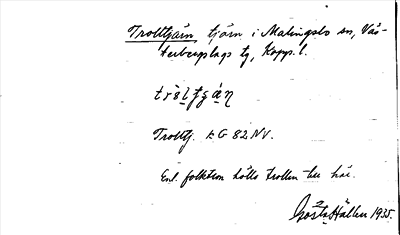 Trolltjärn, tjärn i Malingsbo sn, Väs-
terbergslags tg, Kopp. l.
Trolltj. EG 82 NV.
Enl. folktron hölls trollen här.
Gösta Hallin 1935.